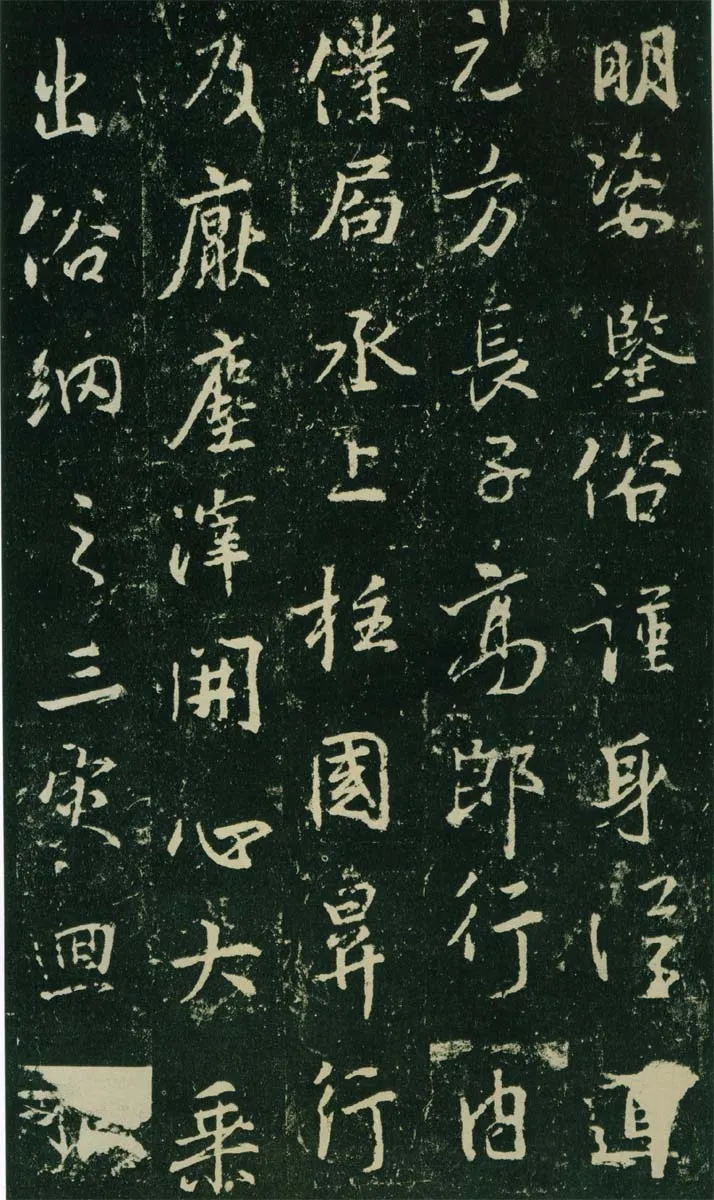 明姿鑒俗謹身
元方長子高郎行内
僕局丞上柱國昇行
及厥塵滓開心大乘
出俗納之三